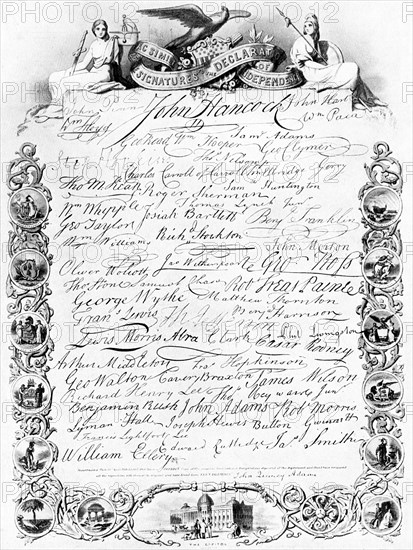 FAC SIMILE
SIGNATURES TO THE DECLARAT
OF INDEPENDENCE
John Hancock
John Hart
Wm Paca
Geo Read Wm Hooper Saml Adams
Geo Clymer
Thos Nelson jr
Charles Carroll of Carrollton Elbridge Gerry
Tho M Kean Roger Sherman Saml Huntington
Wm Whipple Thomas Lynch Junr
Geo Taylor Josiah Bartlett Benj Franklin
Wm Williams Richd Stockton
John Morton
Oliver Wolcott Jno Witherspoon Geo Ross
Thos Stone Samuel Chase Robt Treat Paine
George Wythe Matthew Thornton
Frans Lewis Benj Harrison
Lewis Morris Abra Clark Phil Livingston
Casar Rodney
Arthur Middleton Fras Hopkinson
Geo Walton Carter Braxton James Wilson
Richard Henry Lee Thos Heyward Junr
Benjamin Rush John Adams Robt Morris
Lyman Hall Joseph Hewes Button Gwinnett
Francis Lightfoot Lee
William Ellery Edward Rutledge Jas Smith
John Quincy Adams
THE CAPITOL
PHOTO12